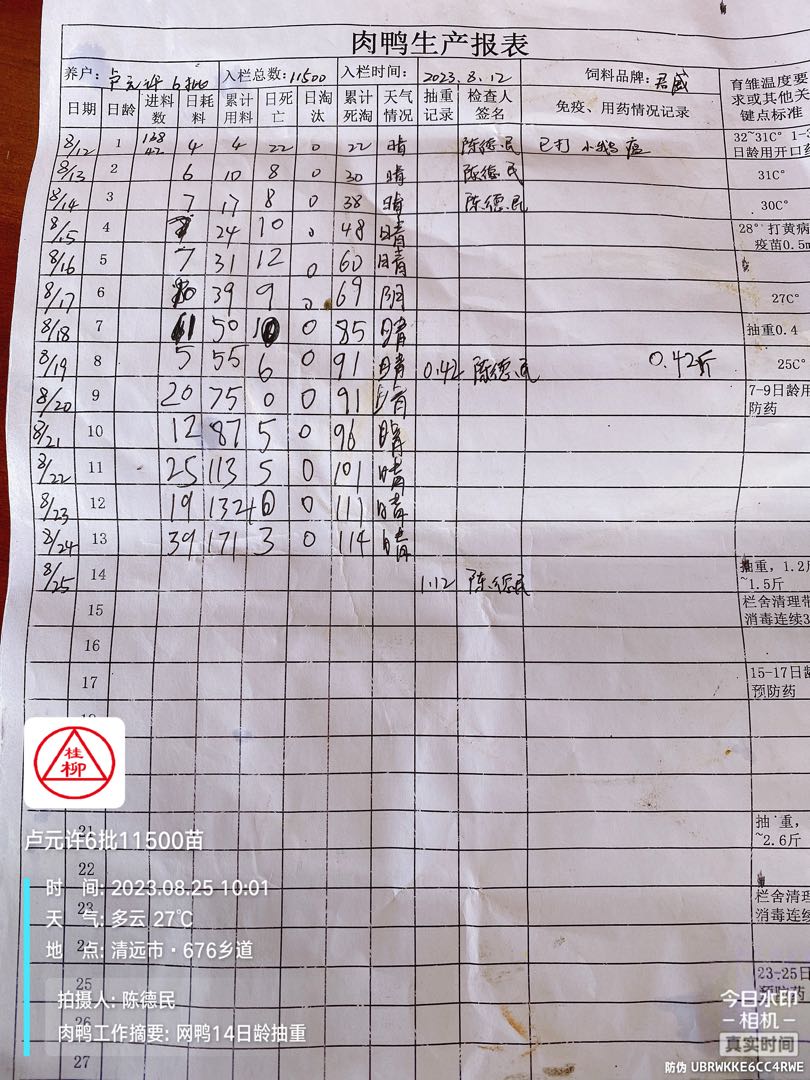 肉鸭生产报表
养户: 卢元许6批 入栏总数: 11500 入栏时间: 2023.8.12 饲料品牌: 君威 育雏温度要求或其他关键点标准
日期 日龄 进料数 日耗料 累计用料 日死亡 日淘汰 累计死淘 天气情况 抽重记录 检查人签名 免疫、用药情况记录
8/12 1 4 4 22 0 22 晴 陈德民 已打 32~31C° 1-3日龄用开口药
8/13 2 6 10 8 0 30 晴 陈德民 31C°
8/14 3 7 17 8 0 38 晴 陈德民 30C°
8/15 4 24 10 0 48 晴 28° 打黄病疫苗0.5m
8/16 5 7 31 12 0 60 晴
8/17 6 39 9 0 69 阴 27C°
8/18 7 11 50 0 85 晴 抽重0.4
8/19 8 5 55 6 0 91 晴 0.42 陈德民 0.42斤 25C°
8/20 9 20 75 0 0 91 晴 7-9日龄用防药
8/21 10 12 87 5 0 96 晴
8/22 11 25 113 5 0 101 晴
8/23 12 19 132 10 0 111 晴
8/24 13 39 171 3 0 114 晴
8/25 14 1.12 陈德民 抽重, 1.2斤~1.5斤
15 栏舍清理带消毒连续3
16
17 15-17日龄预防药
桂柳
21 抽重, ~2.6斤
卢元许6批11500苗
22
时 间: 2023.08.25 10:01
23 栏舍清理消毒连续
天 气: 多云 27℃
地 点: 清远市·676乡道
25 23-25日预防药
拍摄人: 陈德民
26
肉鸭工作摘要: 网鸭14日龄抽重
27
今日水印
-相机-
真实时间
防伪 UBRWKKE6CC4RWE